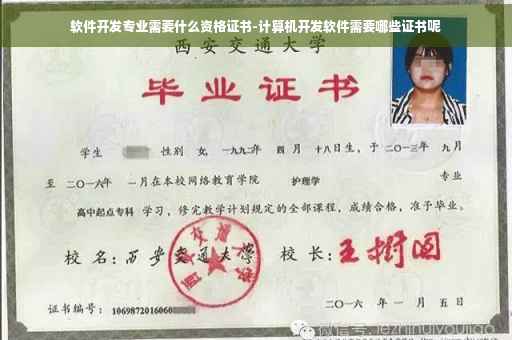 软件开发专业需要什么资格证书-计算机开发软件需要哪些证书呢
西安交通大学
毕业证书
学生 性别 女, 一九九二年 四 月 十八日生, 于 二〇一三年 九月
至 二〇一六年 一月在本校网络教育学院 护理学 专业
高中起点专科 学习, 修完教学计划规定的全部课程, 成绩合格, 准予毕业。
校 名: 西安交通大学 校 长: 王树国
西安交通大学
证书编号: 1069872016060
二〇一六 年 一 月 五 日
微信号: jezhihuiyoujiao